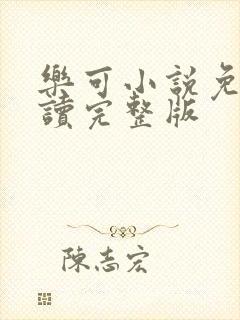 樂可小説免
讀完整版
陳志宏